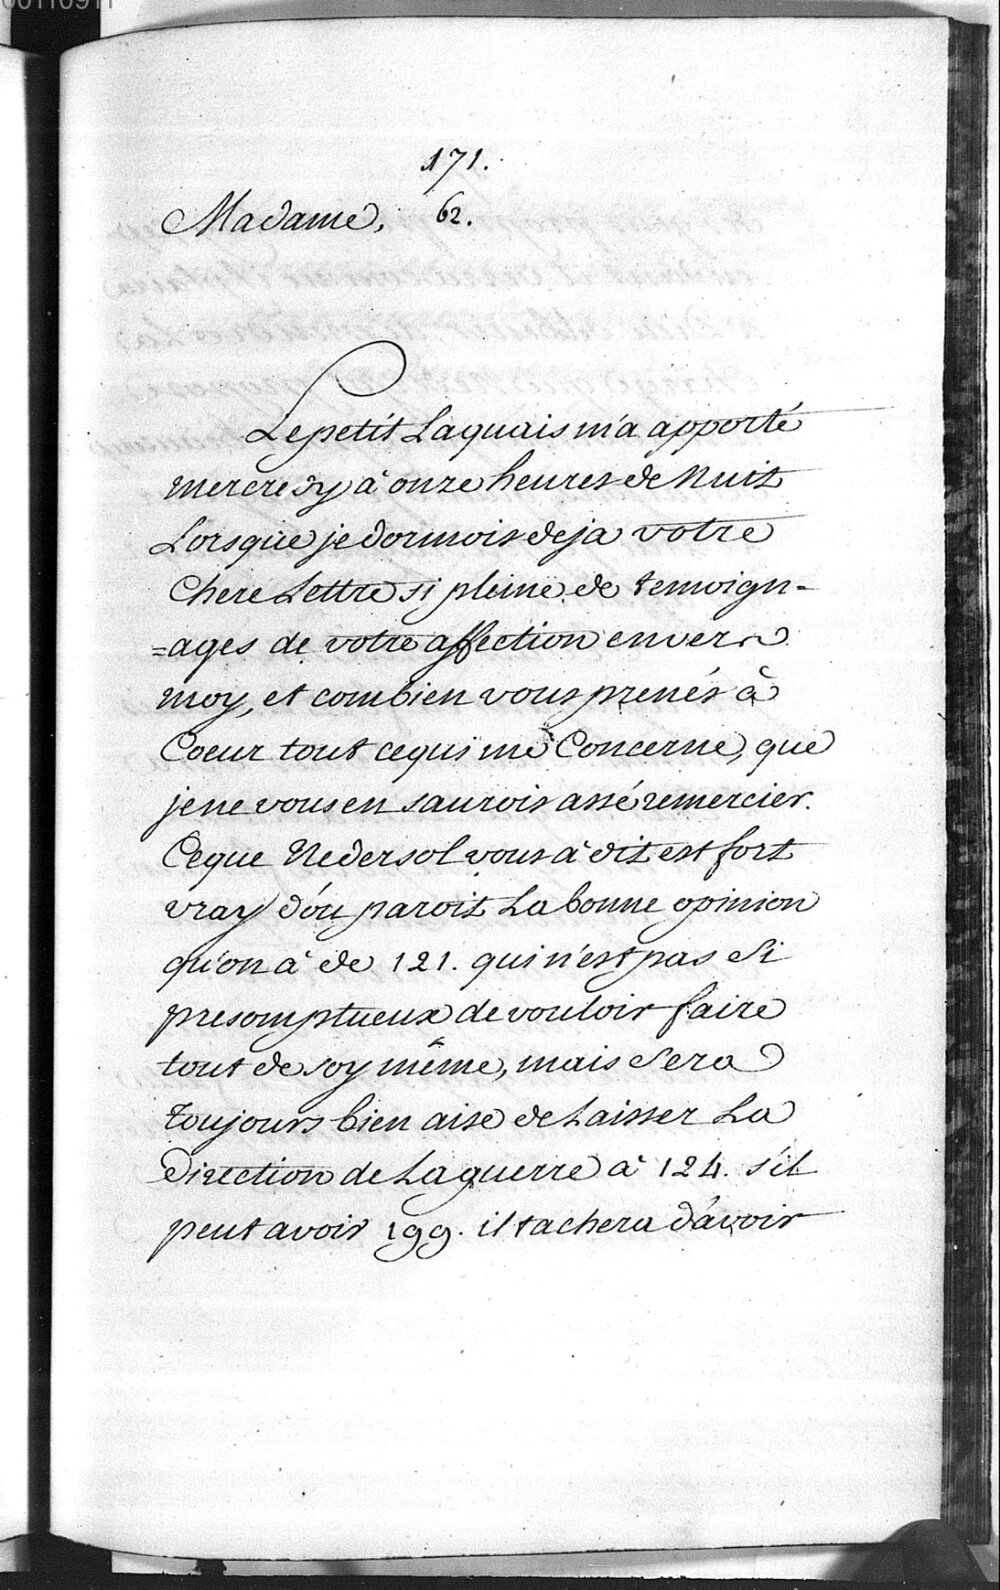 00110911
171.
Madame, 62.
Le petit Laquais m'a apporté
mercredy à onze heures de Nuit
Lorsque je dormois deja votre
Chere Lettre si pleine de temoign-
=ages de votre affection envers
moy, et combien vous prenés à
Coeur tout ce qui me Concerne, que
je ne vous en saurois assé remercier.
Ce que Nedersol vous à dit est fort
vray d'óu paroit La bonne opinion
qu'on à de 121. qui n'est pas si
presomptueux de vouloir faire
tout de soy même, mais sera
toujours bien aise de Laisser La
Direction de La guerre à 124. s'il
peut avoir 199. il tachera d'avoir